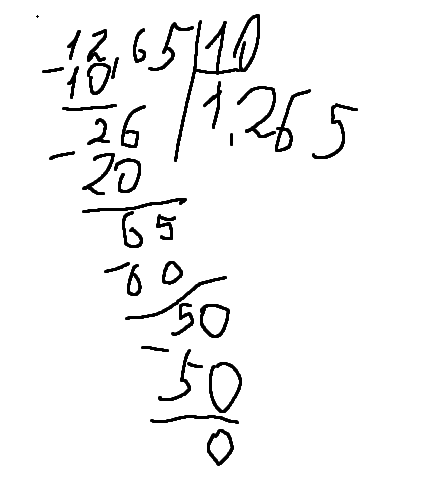 12,65 10
- 10 1.265
26
- 20
65
- 60
50
- 50
0